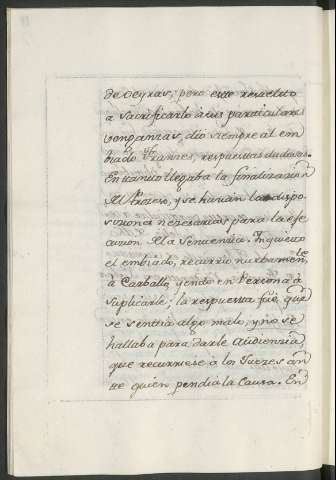 de Oeyras; pero este resuelto
à sacrificarlo à sus particulares
venganzas, dió siempre al em
biado Franzes, respuestas dudosas.
En tanto llegaba la finalizazion
del Prozeso, y se hazian las dispo
siziones nezesarias para la exe
cuzion de la Sentenzia. Inquieto
el embiado, recurrio nuebamente
à Carballo, yendo en Persona à
suplicarle; la respuesta fuè, que
se sentia algo malo, y no se
hallaba para darle Audienzia,
que recurriese à los Juezes an
te quien pendia la Causa. En